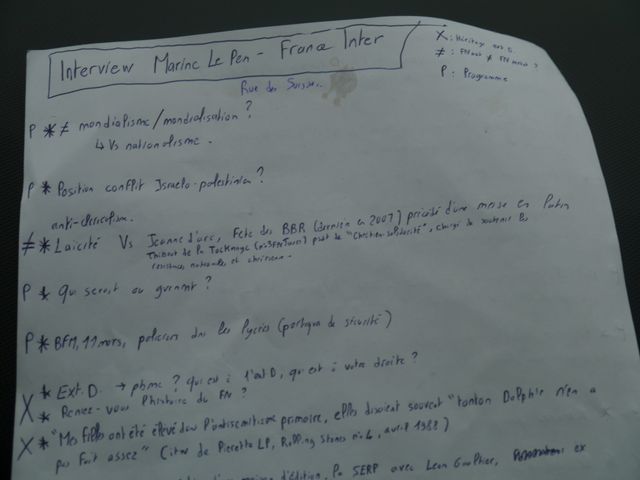 Interview Marine Le Pen - France Inter
X : Héritage ext D.
≠ : FN
P : Programme
Rue des Suisses.
P * ≠ mondialisme/mondialisation ?
↳ Vs nationalisme.
P * Position conflit Israelo-palestinien ?
anti-clericalism.
≠ * Laicité Vs Jeanne d'arc, Fête des BBR (dernière en 2007) précédé d'une messe en latin
Thibaut de la Tocknaye (n°3 FN Paca) pdt de "Chrétien-solidarité", chargé de soutenir les
resistance nationale et chrétienne.
P * Qui serait au gvrnmt ?
P * BFM, 11 mars, policiers dns les lycées (portique de sécurité)
X * Ext. D. → pbme ? qui est à l'ext D, qui est à votre droite ?
* Reniez-vous l'histoire du FN ?
X * "Mes filles ont été élevé dans l'antisemitisme primaire, elles disaient souvent "tonton Dolphie n'en a
pas fait assez" Citas de Pierrette LP, Rolling Stones n°4, avril 1988)
maison d'édition, la SERP avec Leon Gaultier, ex